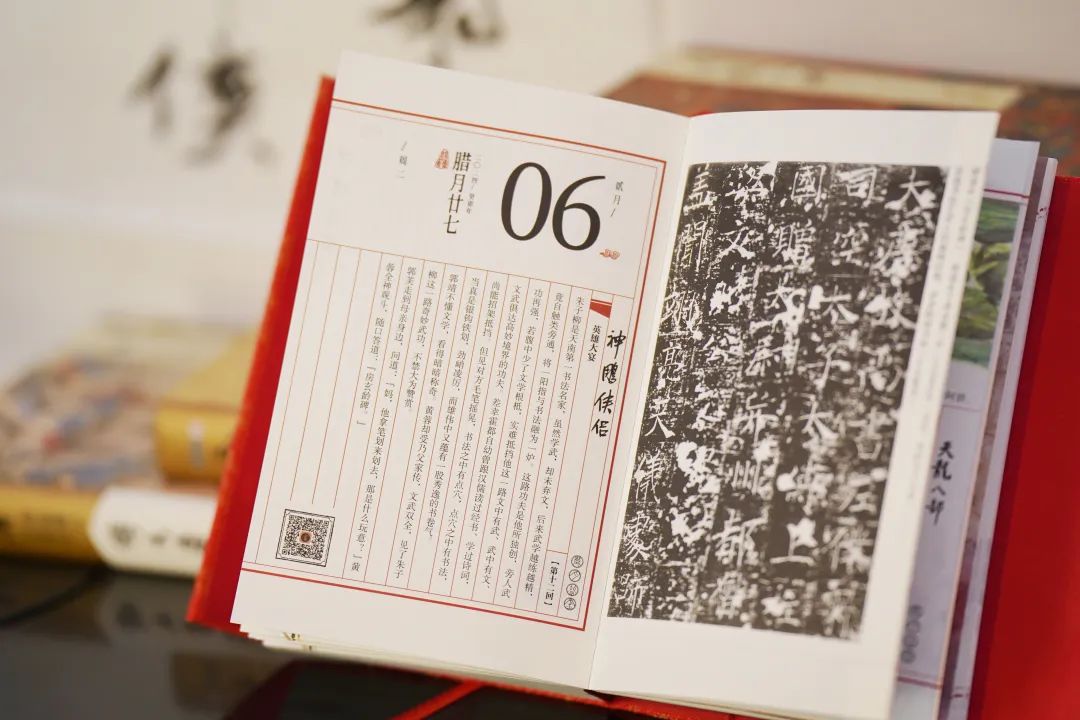 06
贰月/
二〇二四/癸卯年
腊月廿七
/週二
神鵰侠侣
英雄大宴
朱子柳是天南第一书法名家，虽然学武，却未弃文，后来武学越练越精，
竟自触类旁通，将一阳指与书法融为一炉。这路功夫是他所独创，旁人武
功再强，若腹中少了文学根柢，实难抵挡他这一路文中有武、武中有文、
文武俱达高妙境界的功夫。差幸霍都自幼曾跟汉儒读过经书、学过诗词，
尚能招架抵挡。但见对方毛笔摇晃，书法之中有点穴，点穴之中有书法，
当真是银钩铁划，劲峭凌厉，而雄伟中又蕴有一股秀逸的书卷气。
郭靖不懂文学，看得暗暗称奇。黄蓉却受乃父家传，文武双全，见了朱子
柳这一路奇妙武功，不禁大为赞赏。
郭芙走到母亲身边，问道：“妈，他拿笔划来划去，那是什么玩意？”黄
蓉全神观斗，随口答道：“房玄龄碑。”
【第十二回】
大唐故
司空太子太傅上
國贈太尉并州都督
天龙八部